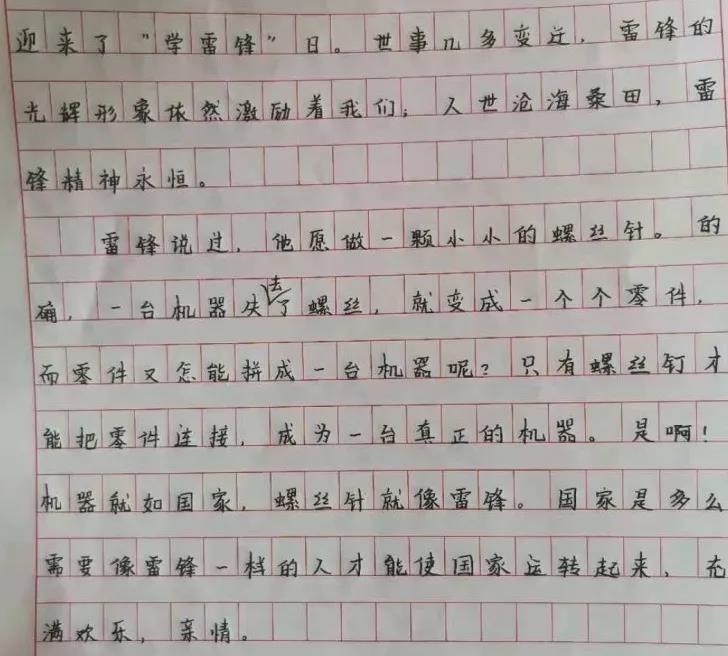 迎来了“学雷锋”日。世事几多变迁，雷锋的
光辉形象依然激励着我们；人世沧海桑田，雷
锋精神永恒。
雷锋说过，他愿做一颗小小的螺丝针。的
确，一台机器失去了螺丝，就变成一个个零件，
而零件又怎能拼成一台机器呢？只有螺丝钉才
能把零件连接，成为一台真正的机器。是啊！
机器就如国家，螺丝针就像雷锋。国家是多么
需要像雷锋一样的人才能使国家运转起来，充
满欢乐，亲情。